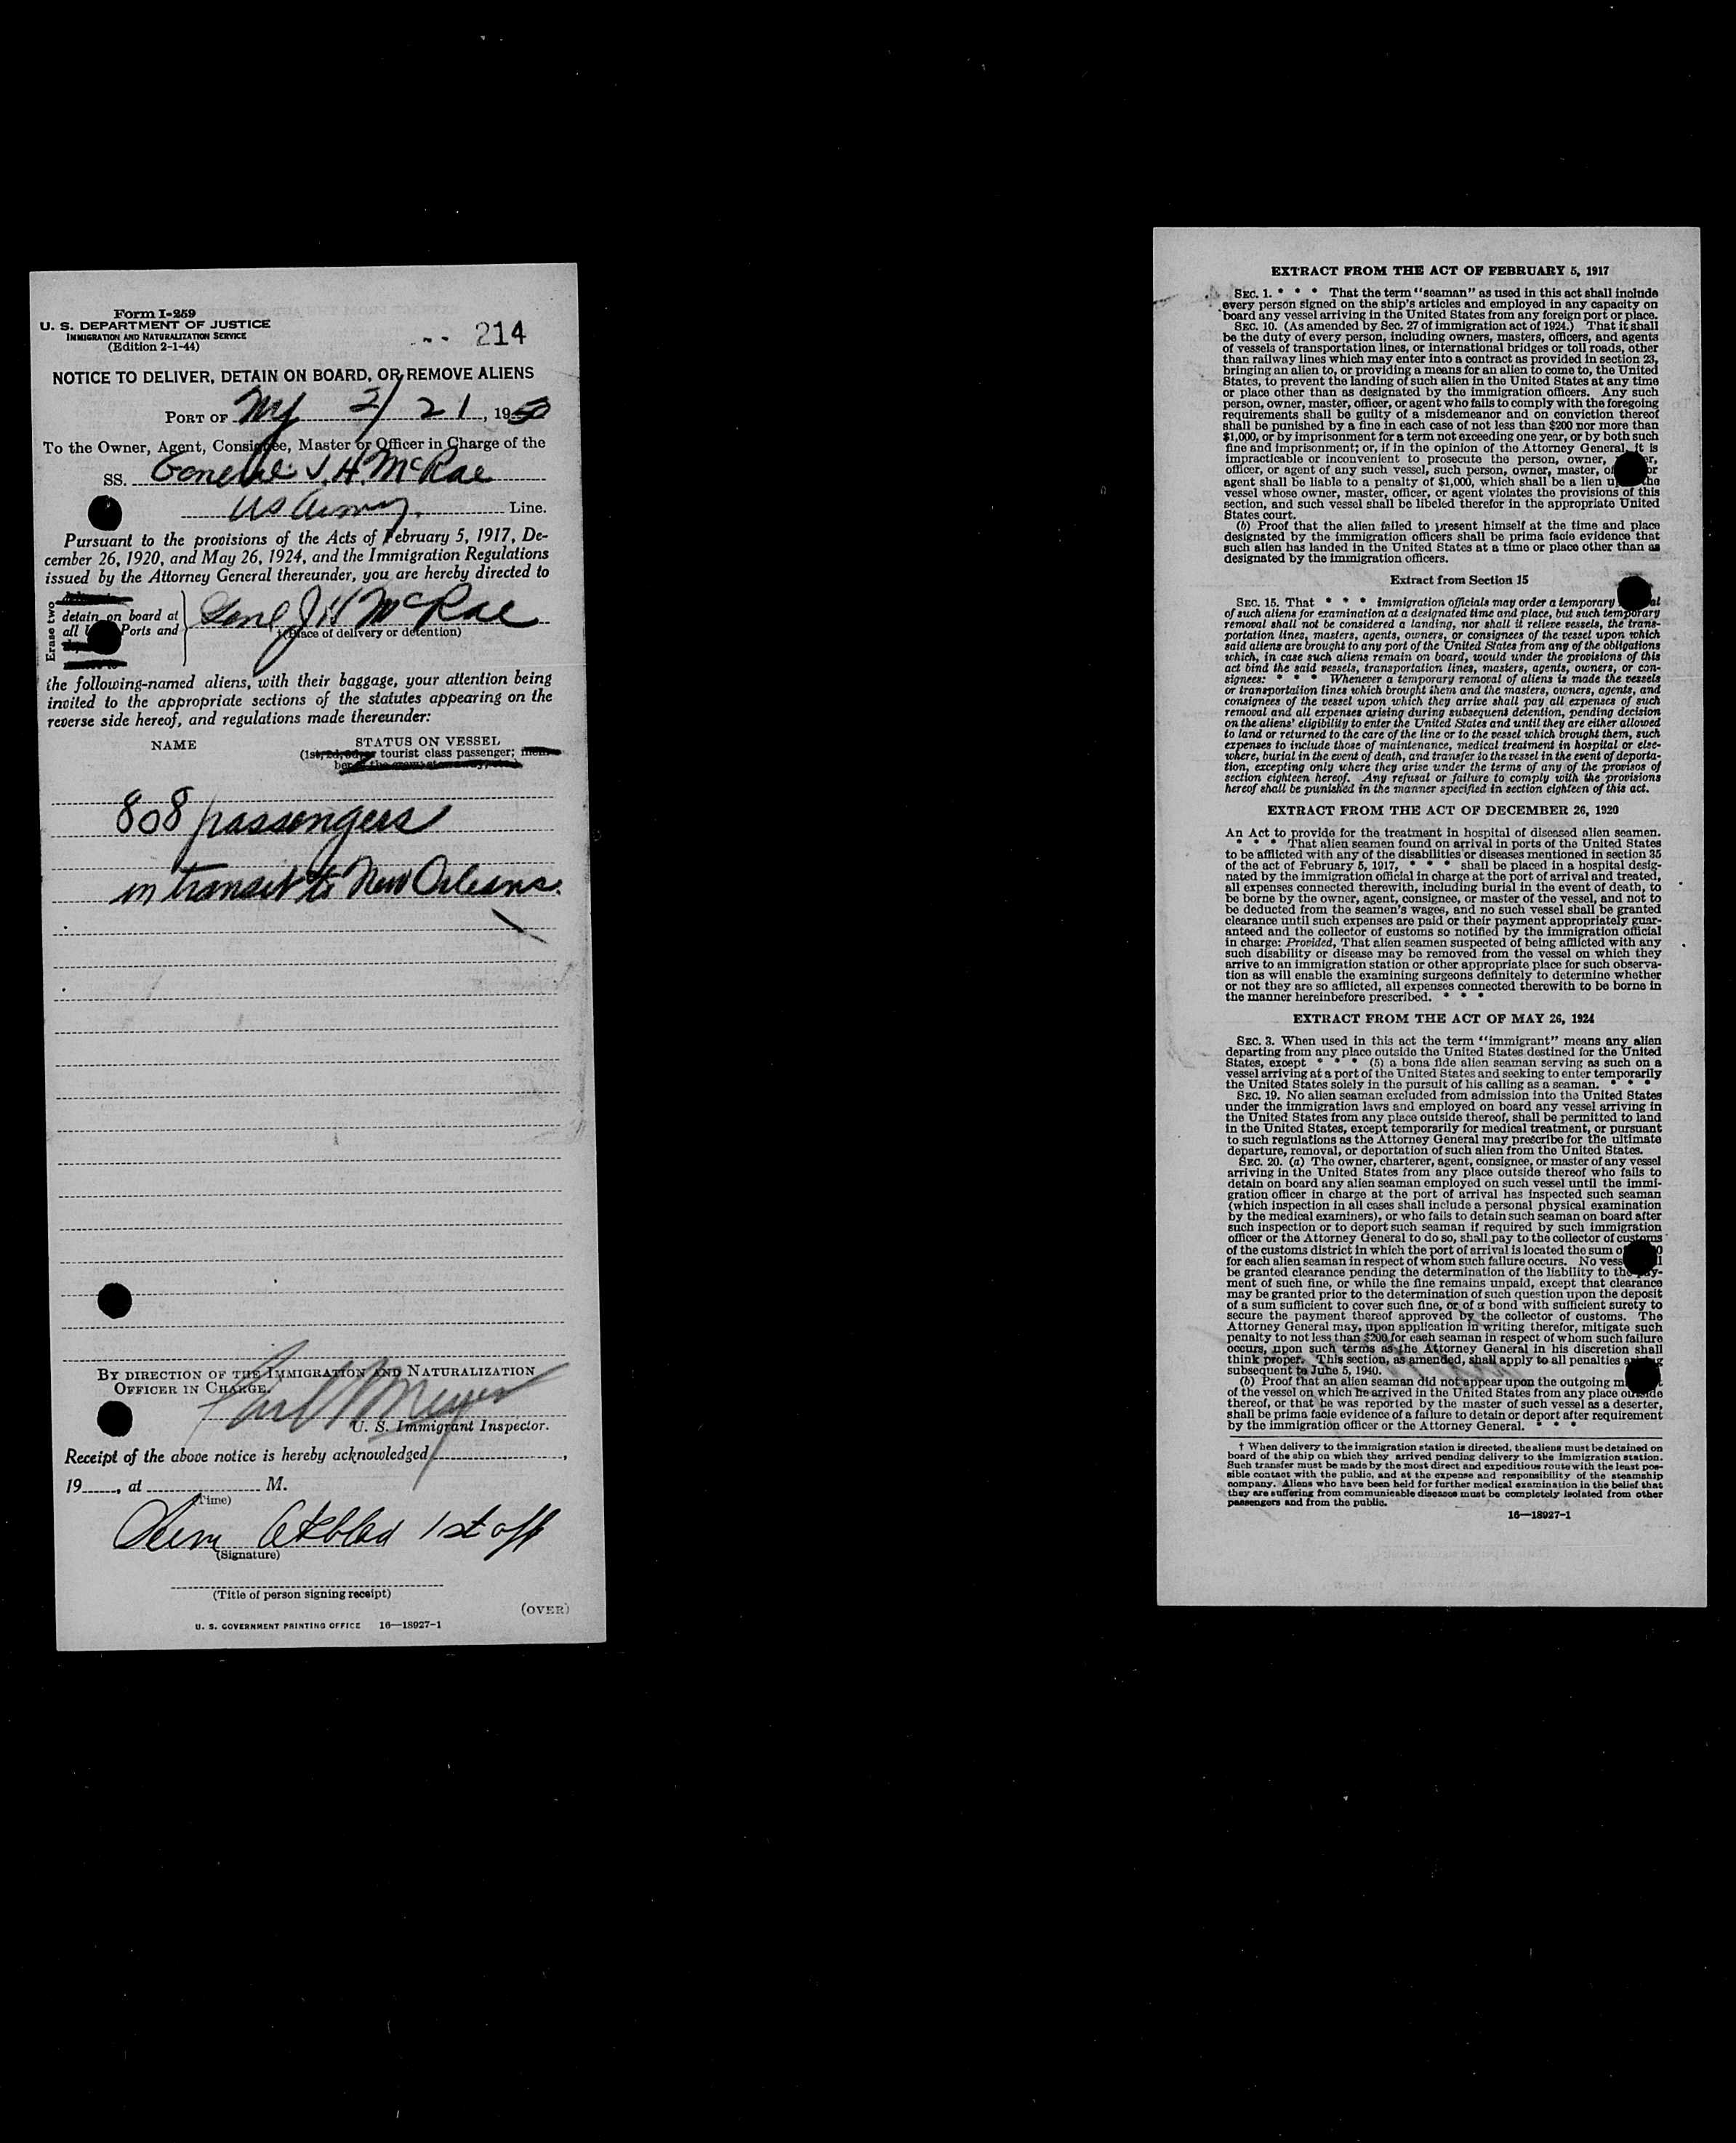 Form I-259
U. S. DEPARTMENT OF JUSTICE
IMMIGRATION AND NATURALIZATION SERVICE
(Edition 2-1-44)
214
NOTICE TO DELIVER, DETAIN ON BOARD, OR REMOVE ALIENS
PORT OF NY 2/21, 1950
To the Owner, Agent, Consignee, Master or Officer in Charge of the
SS. General J. H. McRae
US Army Line.
Pursuant to the provisions of the Acts of February 5, 1917, De-
cember 26, 1920, and May 26, 1924, and the Immigration Regulations
issued by the Attorney General thereunder, you are hereby directed to
Erase two
detain on board at
all Ports and
Genl J H McRae
†(Place of delivery or detention)
the following-named aliens, with their baggage, your attention being
invited to the appropriate sections of the statutes appearing on the
reverse side hereof, and regulations made thereunder:
NAME
STATUS ON VESSEL
(1st, 2d, 3d, or tourist class passenger; mem-
808 passengers
in transit to New Orleans.
BY DIRECTION OF THE IMMIGRATION AND NATURALIZATION
OFFICER IN CHARGE.
U. S. Immigrant Inspector.
Receipt of the above notice is hereby acknowledged ,
19 , at M.
(Time)
1st off
(Signature)
(Title of person signing receipt)
(OVER)
U. S. GOVERNMENT PRINTING OFFICE 16—18927-1
EXTRACT FROM THE ACT OF FEBRUARY 5, 1917
SEC. 1. * * * That the term "seaman" as used in this act shall include
every person signed on the ship's articles and employed in any capacity on
board any vessel arriving in the United States from any foreign port or place.
SEC. 10. (As amended by Sec. 27 of immigration act of 1924.) That it shall
be the duty of every person, including owners, masters, officers, and agents
of vessels of transportation lines, or international bridges or toll roads, other
than railway lines which may enter into a contract as provided in section 23,
bringing an alien to, or providing a means for an alien to come to, the United
States, to prevent the landing of such alien in the United States at any time
or place other than as designated by the immigration officers. Any such
person, owner, master, officer, or agent who fails to comply with the foregoing
requirements shall be guilty of a misdemeanor and on conviction thereof
shall be punished by a fine in each case of not less than $200 nor more than
$1,000, or by imprisonment for a term not exceeding one year, or by both such
fine and imprisonment; or, if in the opinion of the Attorney General, it is
impracticable or inconvenient to prosecute the person, owner,
officer, or agent of any such vessel, such person, owner, master,
agent shall be liable to a penalty of $1,000, which shall be a lien
vessel whose owner, master, officer, or agent violates the provisions of this
section, and such vessel shall be libeled therefor in the appropriate United
States court.
(b) Proof that the alien failed to present himself at the time and place
designated by the immigration officers shall be prima facie evidence that
such alien has landed in the United States at a time or place other than as
designated by the immigration officers.
Extract from Section 15
SEC. 15. That * * * immigration officials may order a temporary
of such aliens for examination at a designated time and place, but such temporary
removal shall not be considered a landing, nor shall it relieve vessels, the trans-
portation lines, masters, agents, owners, or consignees of the vessel upon which
said aliens are brought to any port of the United States from any of the obligations
which, in case such aliens remain on board, would under the provisions of this
act bind the said vessels, transportation lines, masters, agents, owners, or con-
signees: * * * Whenever a temporary removal of aliens is made the vessels
or transportation lines which brought them and the masters, owners, agents, and
consignees of the vessel upon which they arrive shall pay all expenses of such
removal and all expenses arising during subsequent detention, pending decision
on the aliens' eligibility to enter the United States and until they are either allowed
to land or returned to the care of the line or to the vessel which brought them, such
expenses to include those of maintenance, medical treatment in hospital or else-
where, burial in the event of death, and transfer to the vessel in the event of deporta-
tion, excepting only where they arise under the terms of any of the provisos of
section eighteen hereof. Any refusal or failure to comply with the provisions
hereof shall be punished in the manner specified in section eighteen of this act.
EXTRACT FROM THE ACT OF DECEMBER 26, 1920
An Act to provide for the treatment in hospital of diseased alien seamen.
* * * That alien seamen found on arrival in ports of the United States
to be afflicted with any of the disabilities or diseases mentioned in section 35
of the act of February 5, 1917, * * * shall be placed in a hospital desig-
nated by the immigration official in charge at the port of arrival and treated,
all expenses connected therewith, including burial in the event of death, to
be borne by the owner, agent, consignee, or master of the vessel, and not to
be deducted from the seamen's wages, and no such vessel shall be granted
clearance until such expenses are paid or their payment appropriately guar-
anteed and the collector of customs so notified by the immigration official
in charge: Provided, That alien seamen suspected of being afflicted with any
such disability or disease may be removed from the vessel on which they
arrive to an immigration station or other appropriate place for such observa-
tion as will enable the examining surgeons definitely to determine whether
or not they are so afflicted, all expenses connected therewith to be borne in
the manner hereinbefore prescribed. * * *
EXTRACT FROM THE ACT OF MAY 26, 1924
SEC. 3. When used in this act the term "immigrant" means any alien
departing from any place outside the United States destined for the United
States, except * * * (5) a bona fide alien seaman serving as such on a
vessel arriving at a port of the United States and seeking to enter temporarily
the United States solely in the pursuit of his calling as a seaman. * * *
SEC. 19. No alien seaman excluded from admission into the United States
under the immigration laws and employed on board any vessel arriving in
the United States from any place outside thereof, shall be permitted to land
in the United States, except temporarily for medical treatment, or pursuant
to such regulations as the Attorney General may prescribe for the ultimate
departure, removal, or deportation of such alien from the United States.
SEC. 20. (a) The owner, charterer, agent, consignee, or master of any vessel
arriving in the United States from any place outside thereof who fails to
detain on board any alien seaman employed on such vessel until the immi-
gration officer in charge at the port of arrival has inspected such seaman
(which inspection in all cases shall include a personal physical examination
by the medical examiners), or who fails to detain such seaman on board after
such inspection or to deport such seaman if required by such immigration
officer or the Attorney General to do so, shall pay to the collector of customs
of the customs district in which the port of arrival is located the sum
for each alien seaman in respect of whom such failure occurs. No
be granted clearance pending the determination of the liability to the pay-
ment of such fine, or while the fine remains unpaid, except that clearance
may be granted prior to the determination of such question upon the deposit
of a sum sufficient to cover such fine, or of a bond with sufficient surety to
secure the payment thereof approved by the collector of customs. The
Attorney General may, upon application in writing therefor, mitigate such
penalty to not less than $200 for each seaman in respect of whom such failure
occurs, upon such terms as the Attorney General in his discretion shall
think proper. This section, as amended, shall apply to all penalties arising
subsequent to June 5, 1940.
(b) Proof that an alien seaman did not appear upon the outgoing
of the vessel on which he arrived in the United States from any place outside
thereof, or that he was reported by the master of such vessel as a deserter,
shall be prima facie evidence of a failure to detain or deport after requirement
by the immigration officer or the Attorney General. * * *
† When delivery to the immigration station is directed, the aliens must be detained on
board of the ship on which they arrived pending delivery to the immigration station.
Such transfer must be made by the most direct and expeditious route with the least pos-
sible contact with the public, and at the expense and responsibility of the steamship
company. Aliens who have been held for further medical examination in the belief that
they are suffering from communicable diseases must be completely isolated from other
passengers and from the public.
16—18927-1